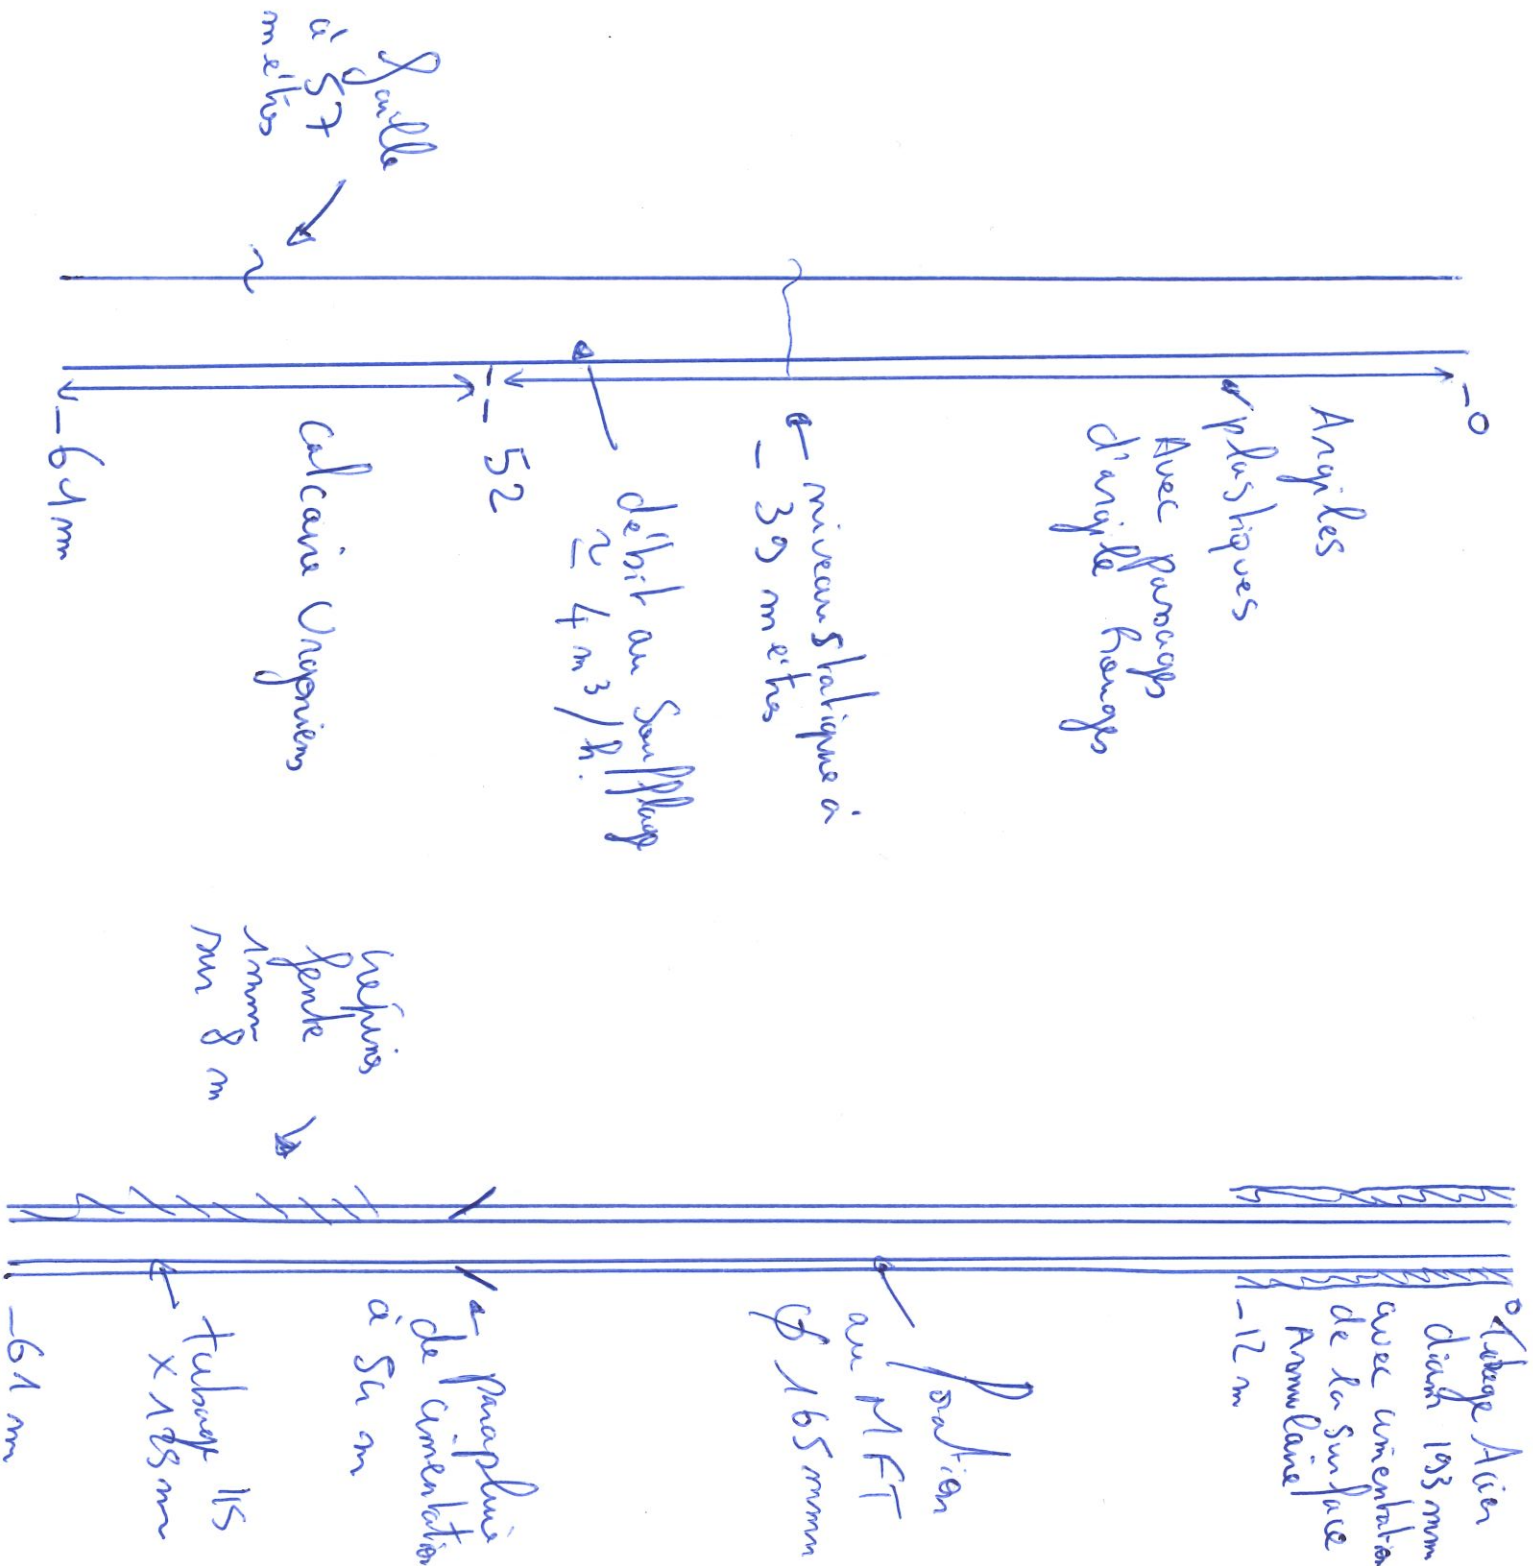 - 0
Argiles
plastiques
Avec passages
d'argile rouges
← niveau statique à
- 39 mètres
débit au soufflage
≃ 4 m³/h.
- 52
Calcaire Urgoniens
- 61 m
faille
à 57
mètres
0
Tubage Acier
diam 193 mm
avec cimentation
de la surface
Annulaire
- 12 m
foration
au MFT
Ø 165 mm
← parapluie
de cimentation
à 50 m
tubage 115
x 125 mm
- 61 m
crépines
fente
1 mm
sur 8 m